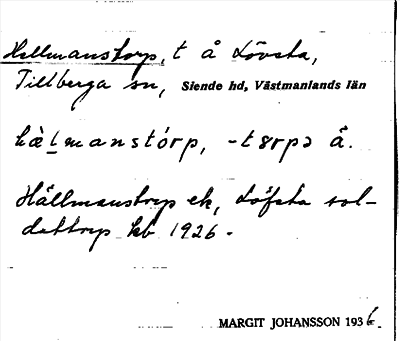 Hellmanstorp, t å Lövsta,
Tillberga sn, Siende hd, Västmanlands län
hὲlmanstórp, -tɞrpə å.
Hällmanstrp ek, Löfsta sol-
dattrp kb 1926.
MARGIT JOHANSSON 1936.